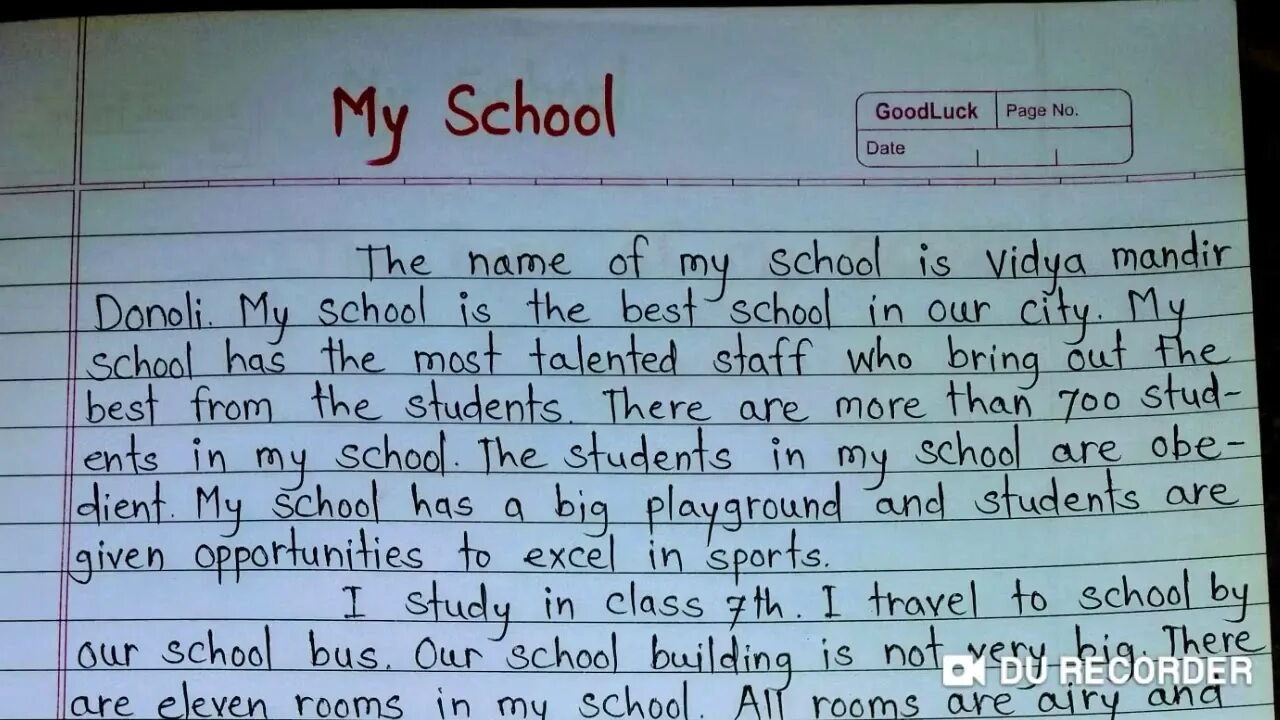 My School
GoodLuck Page No.
Date
The name of my school is vidya mandir
Donoli. My school is the best school in our city. My
school has the most talented staff who bring out the
best from the students. There are more than 700 stud-
ents in my school. The students in my school are obe-
dient. My school has a big playground and students are
given opportunities to excel in sports.
I study in class 7th. I travel to school by
our school bus. Our school building is not very big. There
are eleven rooms in my school. All rooms are airy and
DU RECORDER